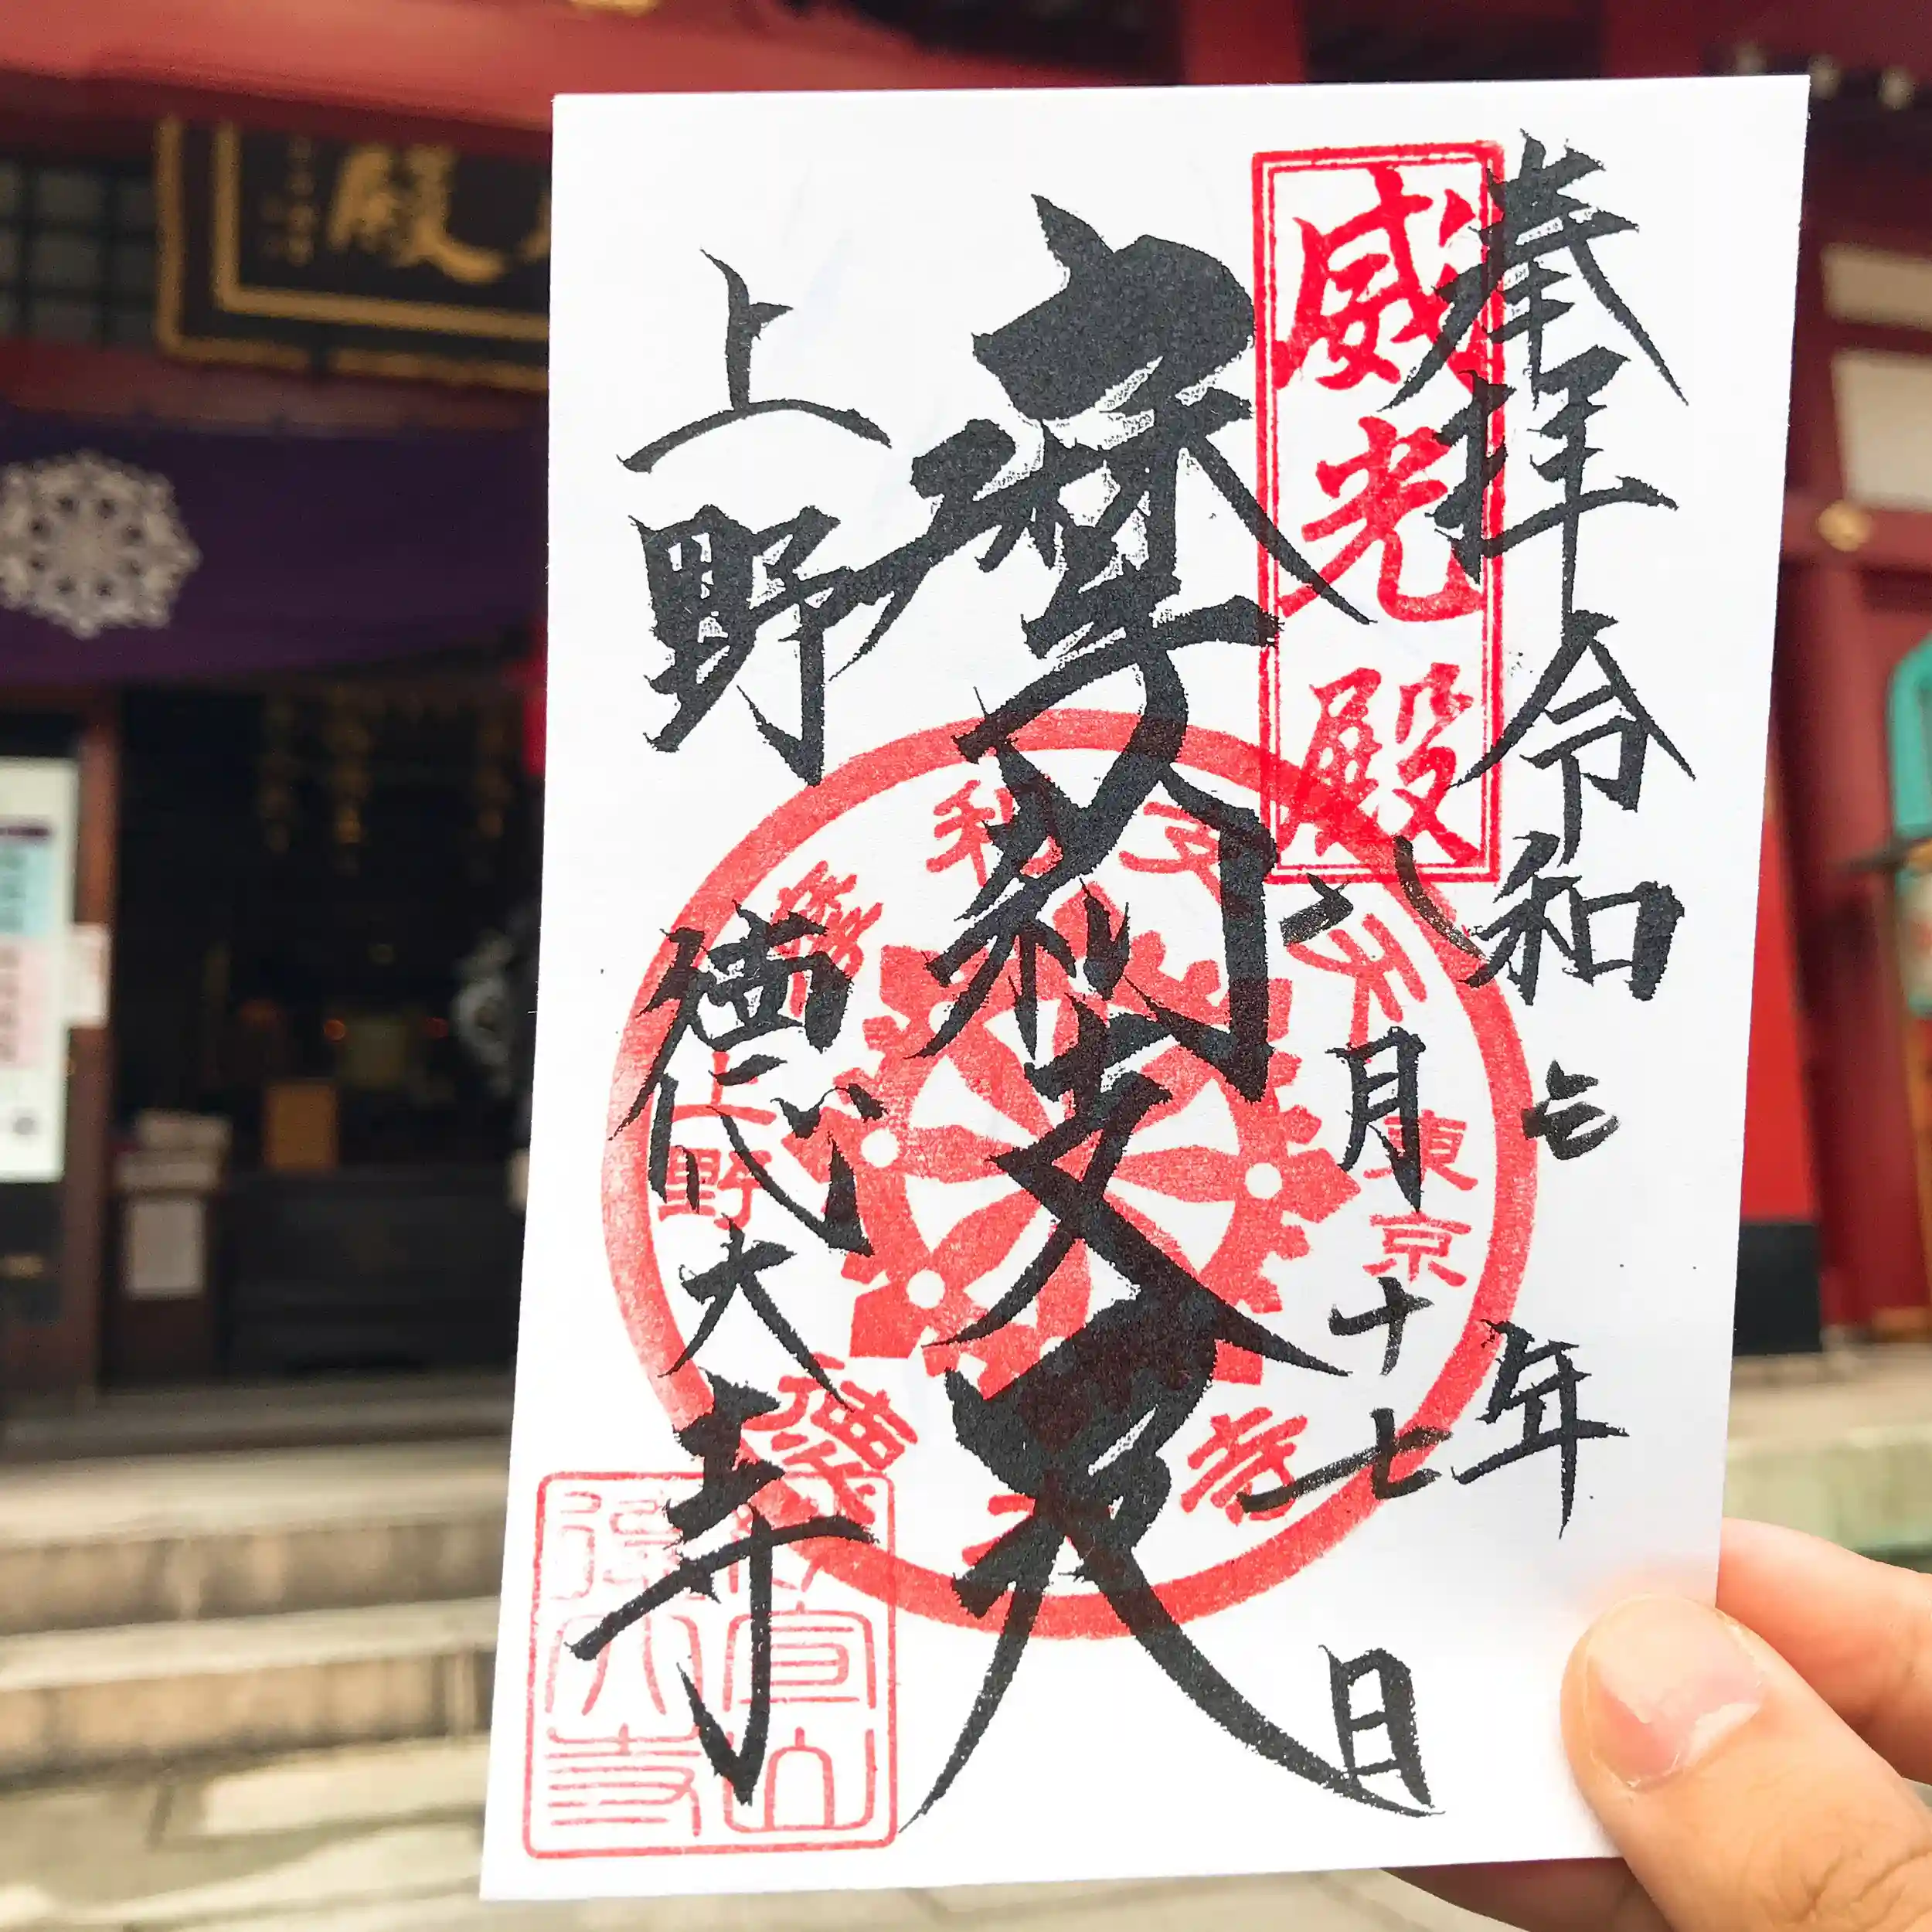 奉拝 令和三年
八月十七日
威光殿
摩利支天
上野
徳大寺
東京
天支利摩
上野
徳大寺
妙宣山
徳大寺
殿